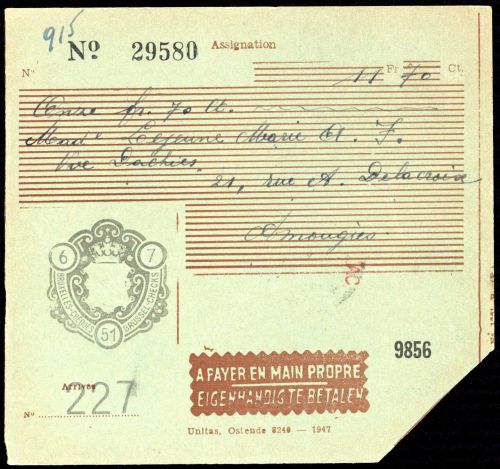 915
Nº 29580 Assignation
Nº 11 Fr 70 Ct.
Onze fr. 70 Ct.
Made Lejeune Marie A. F.
Vve Dachies
21, rue A. Delacroix
Amougies
6 7
BRUXELLES-CHÈQUES 51 BRUSSEL-CHECKS
Arrivée
Nº 227
9856
A PAYER EN MAIN PROPRE
EIGENHANDIG TE BETALEN
Unitas, Ostende 8240 — 1947